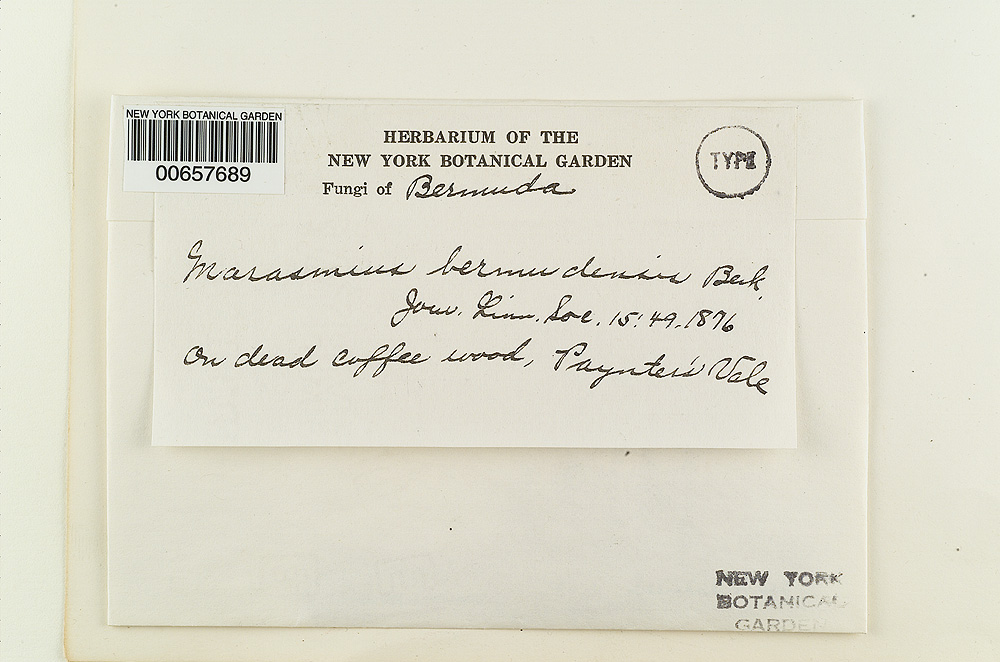 NEW YORK BOTANICAL GARDEN
00657689
HERBARIUM OF THE
NEW YORK BOTANICAL GARDEN
Fungi of Bermuda
TYPE
Marasmius bermudensis Berk.
Jour. Linn. Soc. 15: 49. 1876
On dead coffee wood, Paynter's Vale
NEW YORK
BOTANICAL
GARDEN